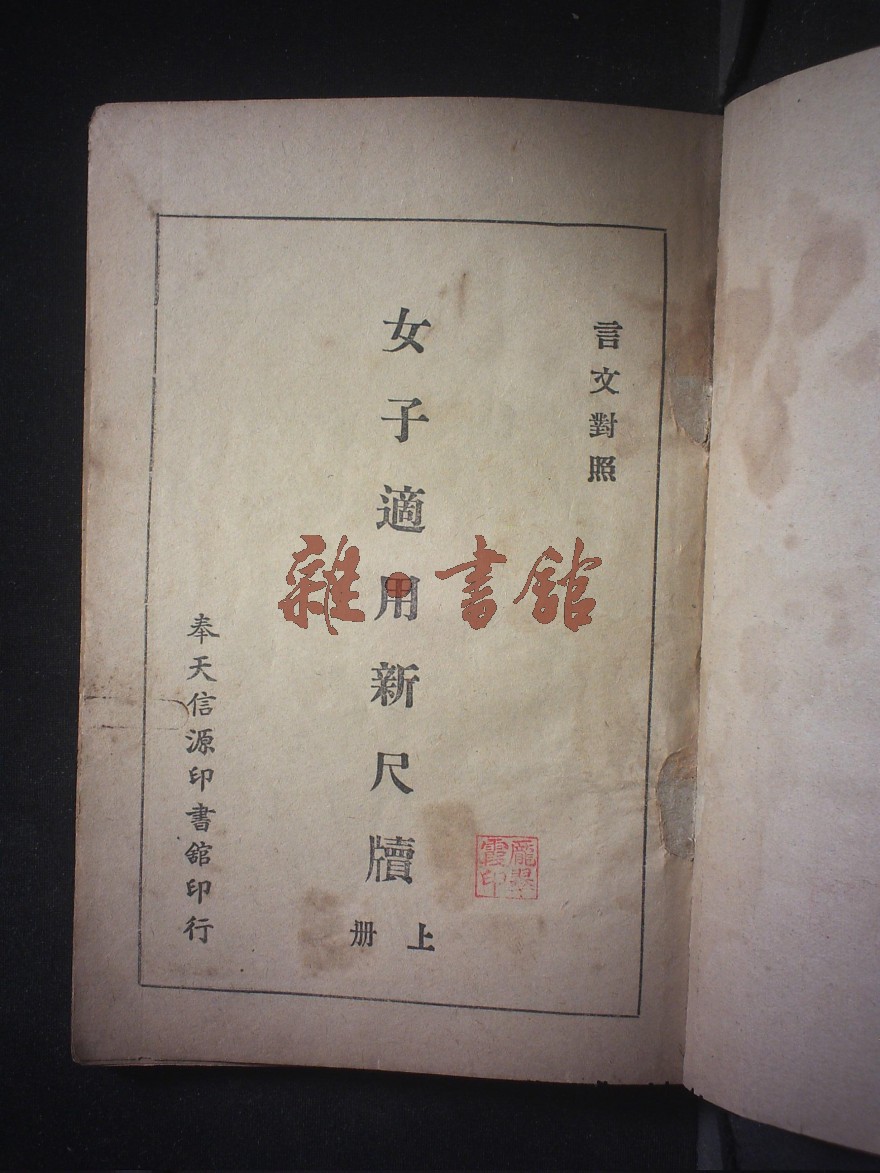 言文對照
女子適用新尺牘
上册
奉天信源印書館印行
雜·書館